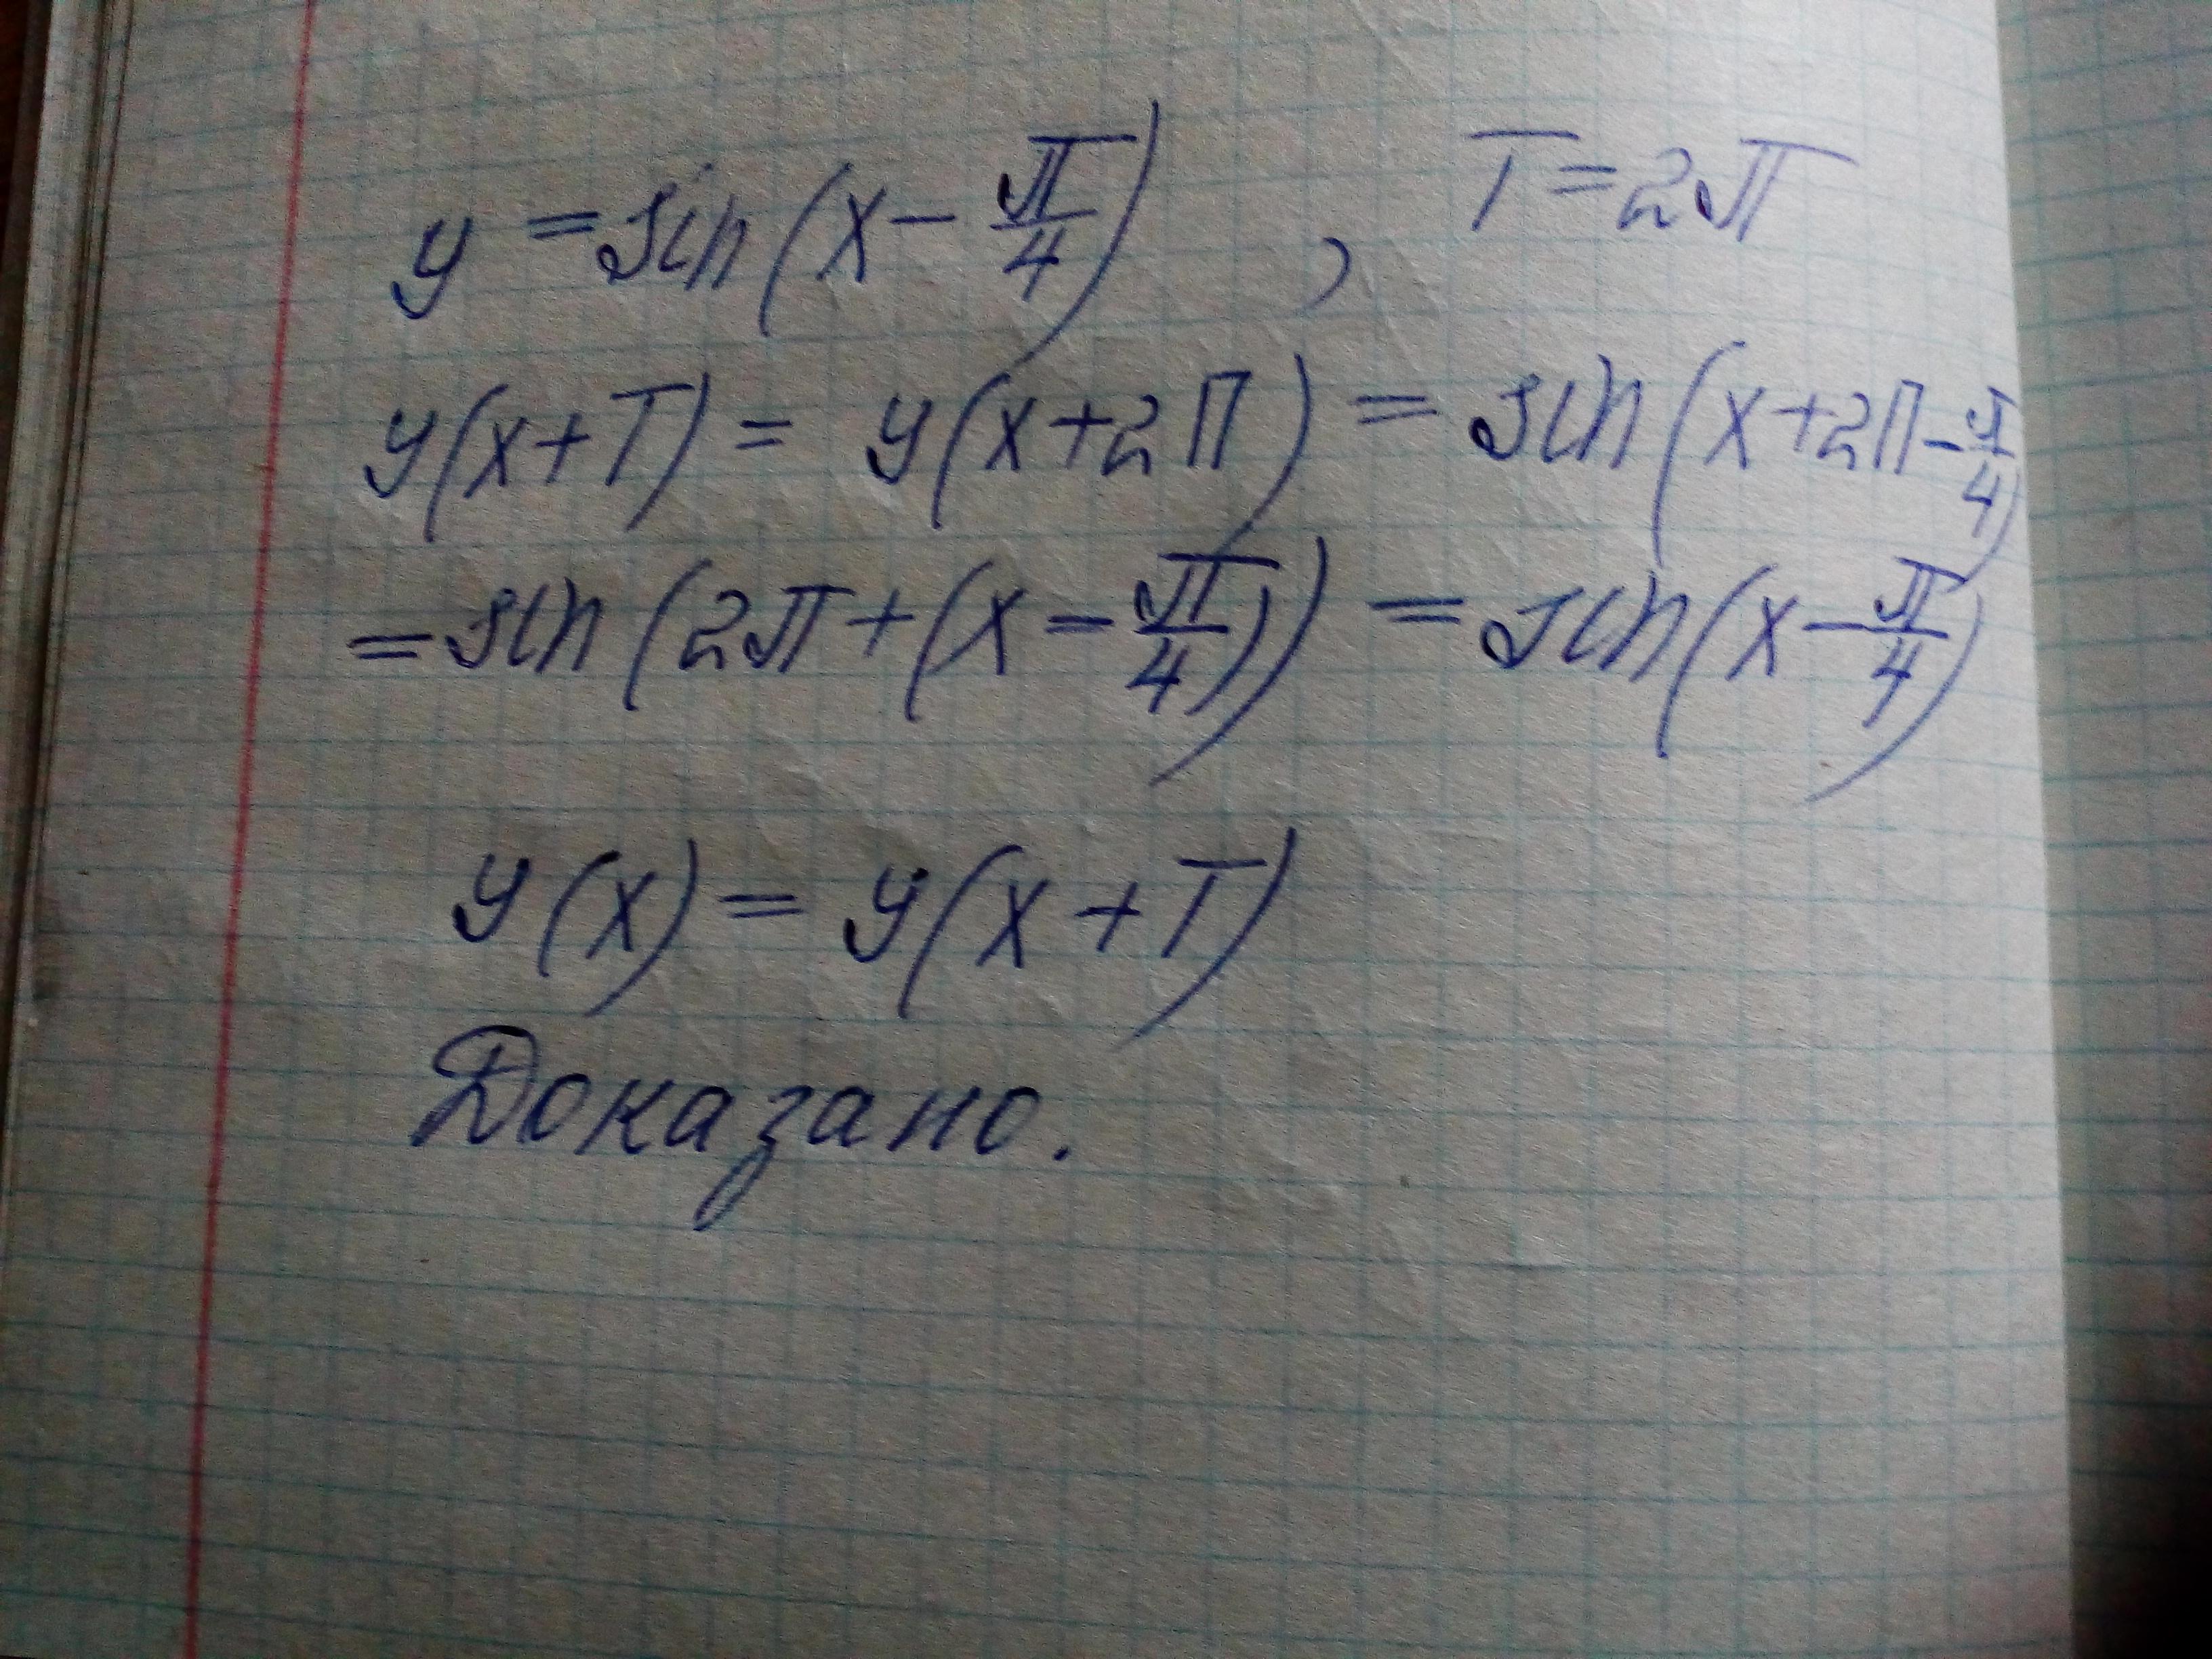 y = sin(x - π/4) , T = 2π
y(x+T) = y(x+2π) = sin(x+2π-π/4)
= sin(2π+(x-π/4)) = sin(x-π/4)
y(x) = y(x+T)
Доказано.